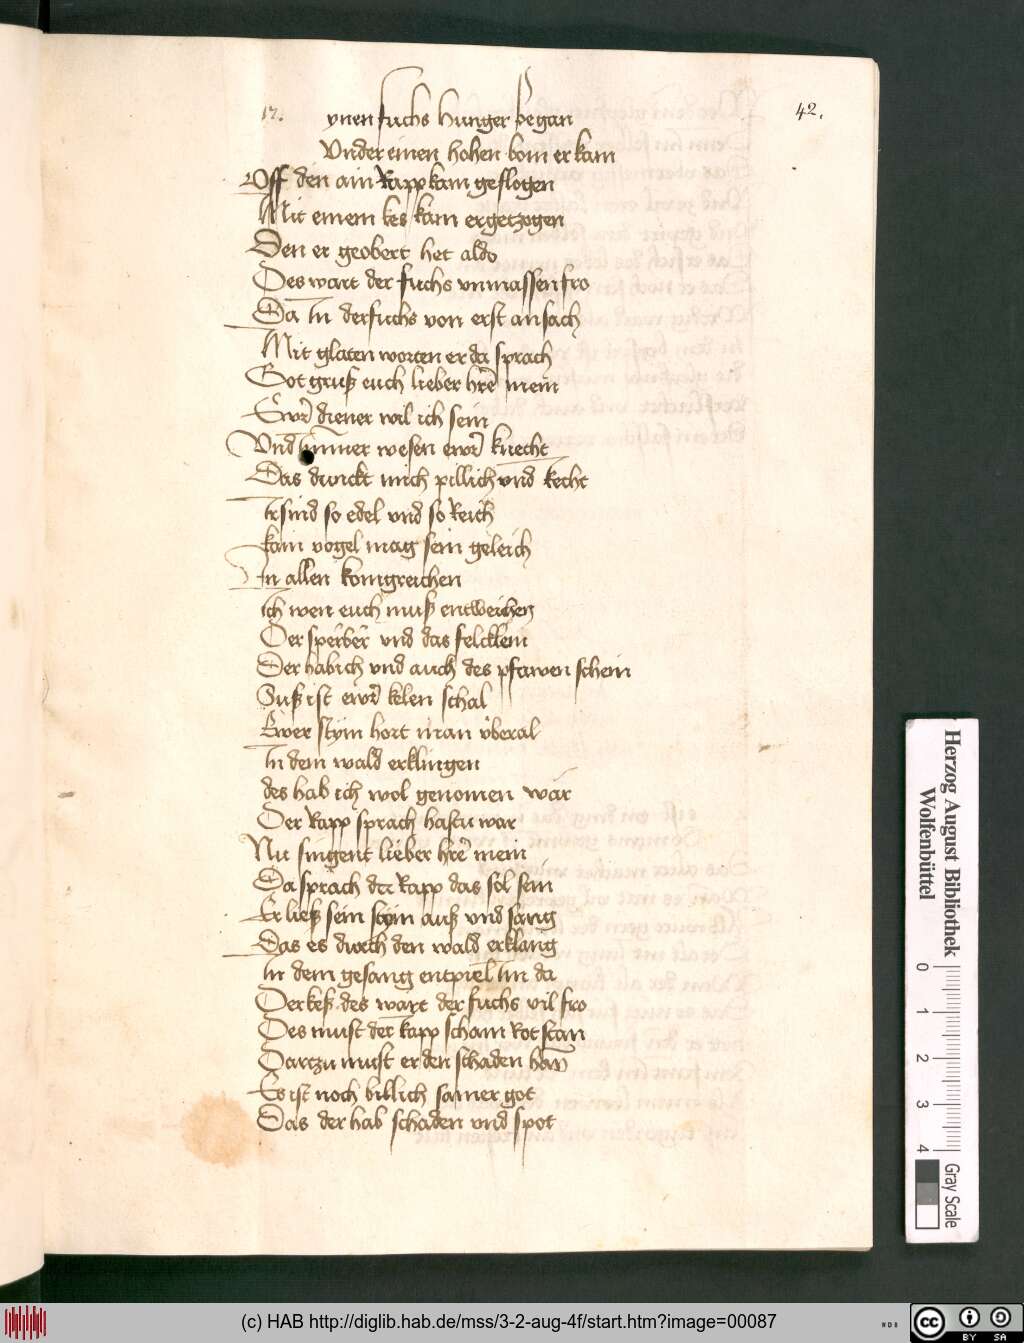 17.
42.
ynen fuchs hunger began
Vnder einen hohen bom er kam
Vff den ain Rapp kam geflogen
Mit einem kes kam er getzogen
Den er geobert het aldo
Des wart der fuchs vnmassen fro
Da In der fuchs von erst ansach
Mit glaten worten er da sprach
Got gruß euch lieber hrē mein
Ewr diener wil ich sein
Vnd Immer wesen ewr knecht
Das dunckt mich pillich vnd Recht
Ir sind so edel vnd so Reich
kain vogel mag sein geleich
In allen konigreichen
Ich wen euch muß entweichen
Der sperber vnd das felcklein
Der habich vnd auch des pfawen schein
Suß ist ewr kelen schal
Ewer stym hort man vberal
In dem wald erklingen
des hab ich wol genomen war
Der Rapp sprach hastu war
Nu singent lieber hrē mein
Da sprach der Rapp das sol sein
Er ließ sein stym auß vnd sang
Das es durch den wald erklang
In dem gesang entpiel Im da
Der keß des wart der fuchs vil fro
Des must der Rapp scham Rot stan
Dartzu must er den schaden han
Es ist noch billich samer got
Das der hab schaden vnd spot
Herzog August Bibliothek
Wolfenbüttel
0 1 2 3 4
Gray Scale
(c) HAB http://diglib.hab.de/mss/3-2-aug-4f/start.htm?image=00087
cc BY SA